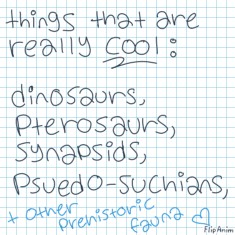 things that are
really COOL:
dinosaurs,
Pterosaurs,
Synapsids,
Psuedo-suchians,
+ other
prehistoric
fauna
FlipAnim